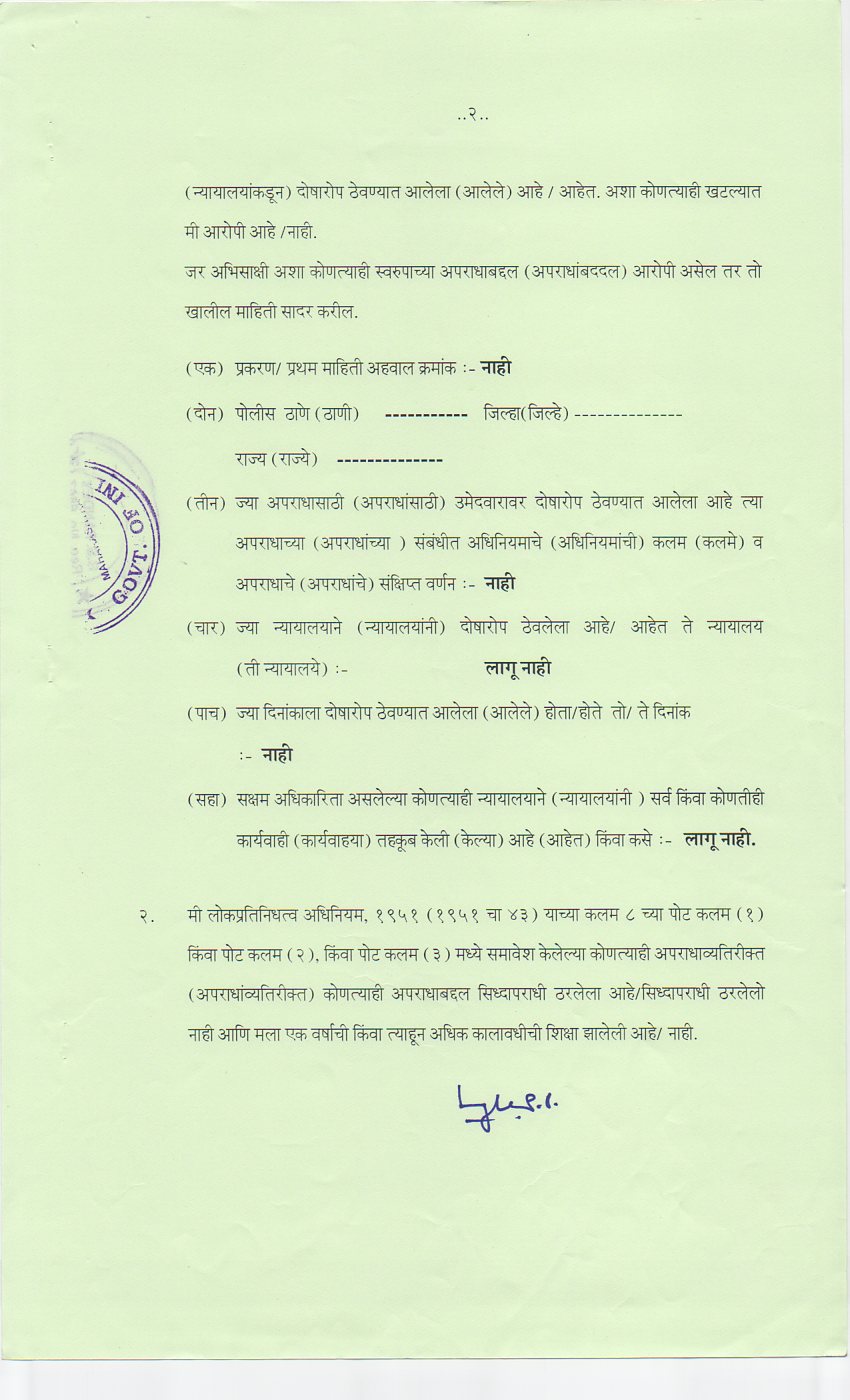 ..२..
(न्यायालयांकडून) दोषारोप ठेवण्यात आलेला (आलेले) आहे / आहेत. अशा कोणत्याही खटल्यात
मी आरोपी आहे /नाही.
जर अभिसाक्षी अशा कोणत्याही स्वरुपाच्या अपराधाबद्दल (अपराधांबददल) आरोपी असेल तर तो
खालील माहिती सादर करील.
(एक) प्रकरण/ प्रथम माहिती अहवाल क्रमांक :- नाही
(दोन) पोलीस ठाणे (ठाणी) ----------- जिल्हा(जिल्हे) --------------
राज्य (राज्ये) --------------
(तीन) ज्या अपराधासाठी (अपराधांसाठी) उमेदवारावर दोषारोप ठेवण्यात आलेला आहे त्या
अपराधाच्या (अपराधांच्या ) संबंधीत अधिनियमाचे (अधिनियमांची) कलम (कलमे) व
अपराधाचे (अपराधांचे) संक्षिप्त वर्णन :- नाही
(चार) ज्या न्यायालयाने (न्यायालयांनी) दोषारोप ठेवलेला आहे/ आहेत ते न्यायालय
(ती न्यायालये) :- लागू नाही
(पाच) ज्या दिनांकाला दोषारोप ठेवण्यात आलेला (आलेले) होता/होते तो/ ते दिनांक
:- नाही
(सहा) सक्षम अधिकारिता असलेल्या कोणत्याही न्यायालयाने (न्यायालयांनी ) सर्व किंवा कोणतीही
कार्यवाही (कार्यवाहया) तहकूब केली (केल्या) आहे (आहेत) किंवा कसे :- लागू नाही.
२. मी लोकप्रतिनिधत्व अधिनियम, १९५१ (१९५१ चा ४३) याच्या कलम ८ च्या पोट कलम (१)
किंवा पोट कलम (२), किंवा पोट कलम (३) मध्ये समावेश केलेल्या कोणत्याही अपराधाव्यतिरीक्त
(अपराधांव्यतिरीक्त) कोणत्याही अपराधाबद्दल सिध्दापराधी ठरलेला आहे/सिध्दापराधी ठरलेलो
नाही आणि मला एक वर्षाची किंवा त्याहून अधिक कालावधीची शिक्षा झालेली आहे/ नाही.
GOVT. OF